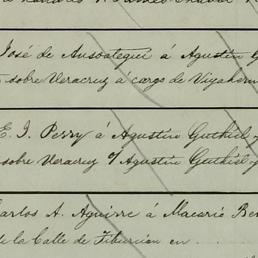 José de Ansoategui á Agustin G
sobre Veracruz á cargo de Viya hermº
E. J. Perry á Agustin Guthiel y
sobre Veracruz c/ Agustin Guthiel y
Carlos A. Aguirre á Macario Ber
de la Calle de Tiburcien en ....